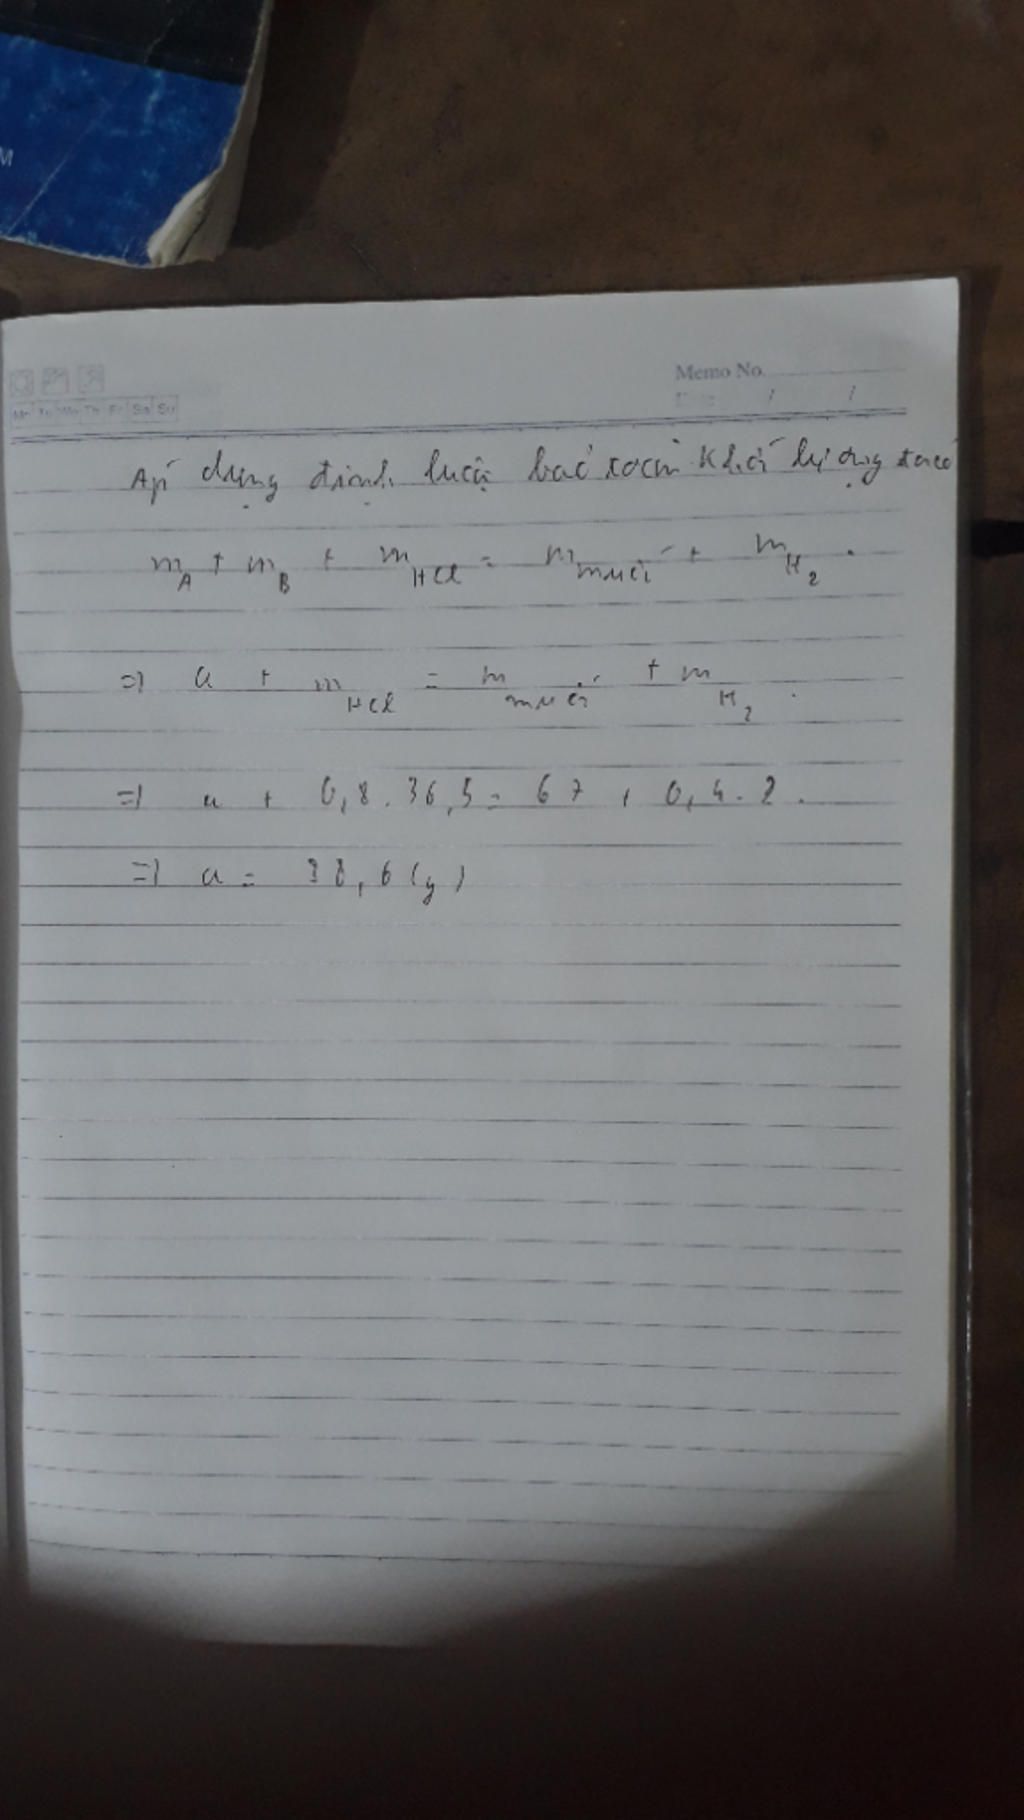 M
Memo No.
Mo Tu We Th Fr Sa Su
Date / /
Áp dụng định luật bảo toàn khối lượng ta có
m_A + m_B + m_HCl = m_muối + m_H2.
=> a + m_HCl = m_muối + m_H2.
=> a + 0,8.36,5 = 67 + 0,4.2.
=> a = 38,6 (g)